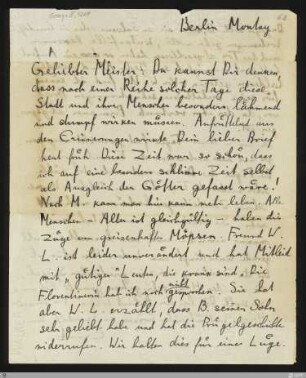 Berlin Montag
Geliebter Meister: Du kannst Dir denken,
dass nach einer Reihe solcher Tage diese
Stadt und ihre Menschen besonders lähmend
und stumpf wirken müssen. Anfüllend
den Erinnerungen wirkte Dein lieber Brief
heut früh. Diese Zeit war so schön, dass
ich auf eine besonders schlimme Zeit selbst
als Ausgleich der Götter gefasst wäre!
Nach M. kann man hier kaum mehr leben. Alle
Menschen – Alles ist gleichgültig – haben die
Züge von greisenhaften Möpsen. Freund W.
L. ist leider unverändert und hat Mitleid
mit „gütigen" Leuten, die krank sind. Die
Florentinerin hab ich noch nicht gesprochen! Sie hat
aber W. L. erzählt, dass B. seinen Sohn
sehr geliebt habe und hat die Prügelgeschichte
widerrufen. Wir halten dies für eine Lüge.